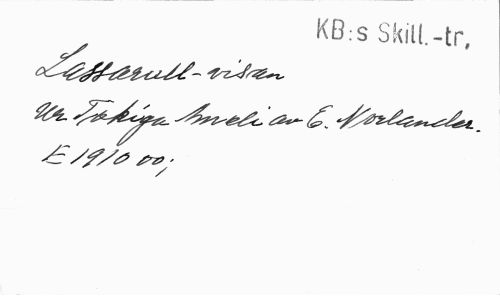 KB:s Skill.-tr.
Lassarull-visan
ur Tokiga Ameli av E. Norlander.
E 1910 oo;